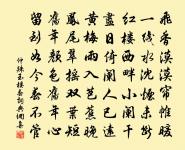 飛香漠漠簾帷暖
一線水沈煙未斷
紅樓西畔小闌干
盡日倚闌人已遠
黃梅雨入芭蕉晚
鳳尾翠搖雙葉短
舊年顏色舊年心
留到如今春不管
仲殊玉樓春詞典網書